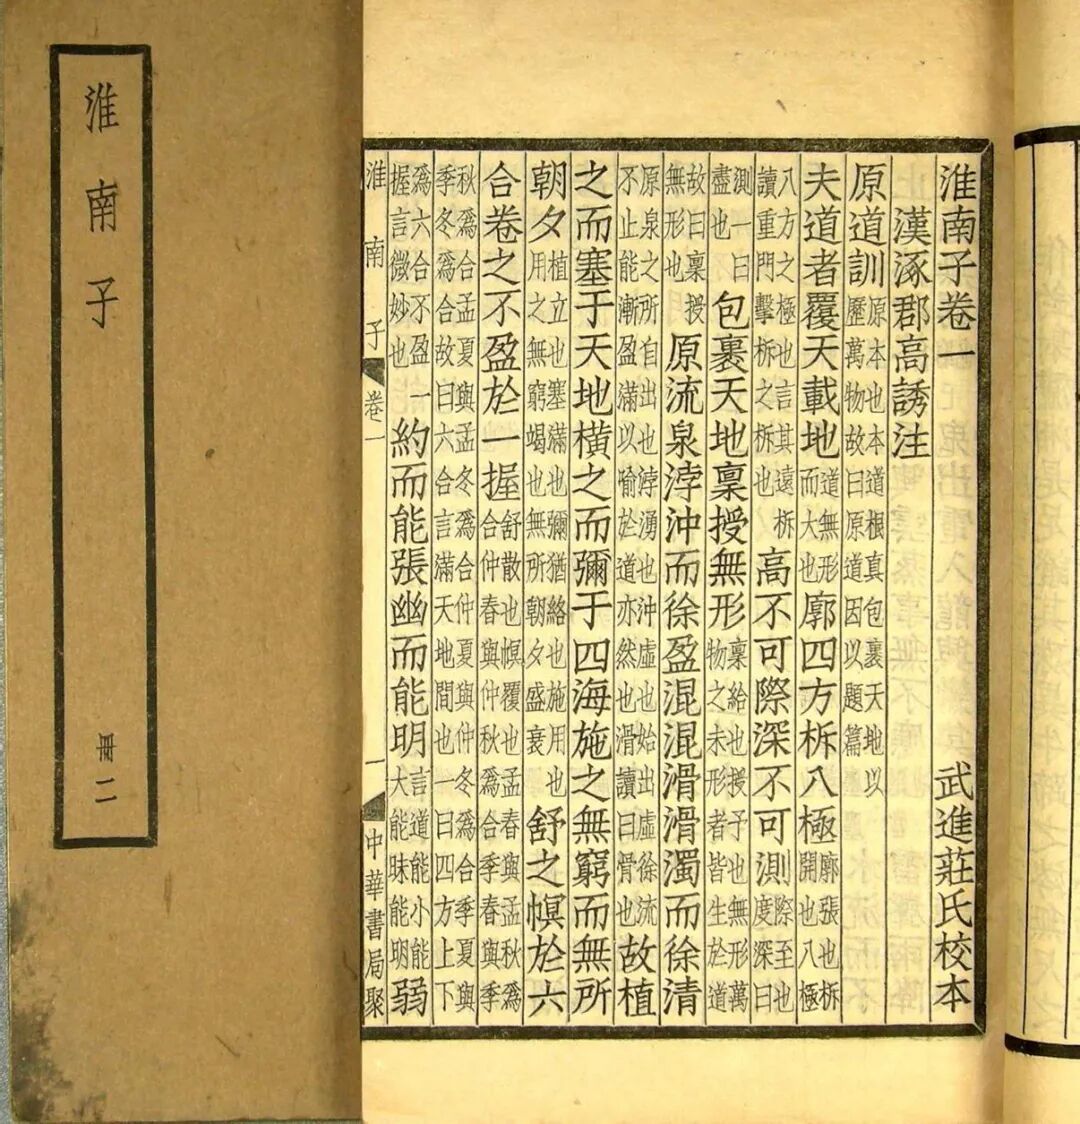 淮南子卷一 武進莊氏校本
漢涿郡高誘注
原道訓 原本也本道根真包裹天地以歷萬物故曰原道因以題篇
夫道者覆天載地 道無形而大也 廓四方柝八極 廓張也柝開也八極
八方之極也言其遠柝讀重門擊柝之柝也 高不可際深不可測 際至也度深曰
測一曰盡也 包裹天地稟授無形 稟給也授予也無形萬物之未形者皆生於道
故曰稟授無形也 原流泉浡沖而徐盈混混滑滑濁而徐清
原泉之所自出也浡湧也沖虛也始出虛徐流不止能漸盈滿以喻於道亦然也滑讀曰骨也 故植
之而塞于天地橫之而彌于四海施之無窮而無所
朝夕 植立也塞滿也彌猶絡也施用也用之無窮竭也無所朝夕盛衰 舒之幎於六
合卷之不盈於一握 舒散也幎覆也孟春與孟秋爲合仲春與仲秋爲合季春與季
秋爲合孟夏與孟冬爲合仲夏與仲冬爲合季夏與季冬爲合故曰六合言滿天地間也一曰四方上下
爲六合不盈一握言微妙也 約而能張幽而能明 言道能小能大能昧能明 弱
淮南子 卷一 一 中華書局聚
淮南子 冊二